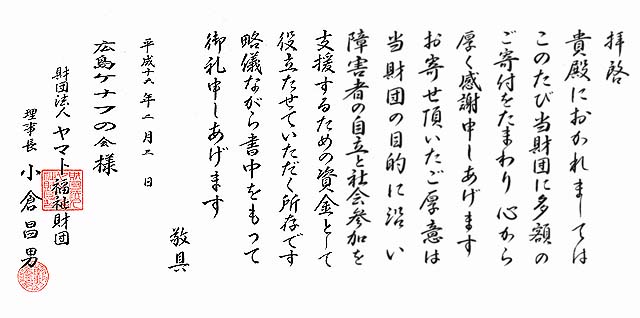 拝啓
貴殿におかれましては
このたび当財団に多額の
ご寄付をたまわり 心から
厚く感謝申しあげます
お寄せ頂いたご厚意は
当財団の目的に沿い
障害者の自立と社会参加を
支援するための資金として
役立たせていただく所存です
略儀ながら書中をもって
御礼申しあげます
敬具
平成十六年二月二日
広島ケナフの会 様
財団法人 ヤマト福祉財団
理事長 小倉昌男